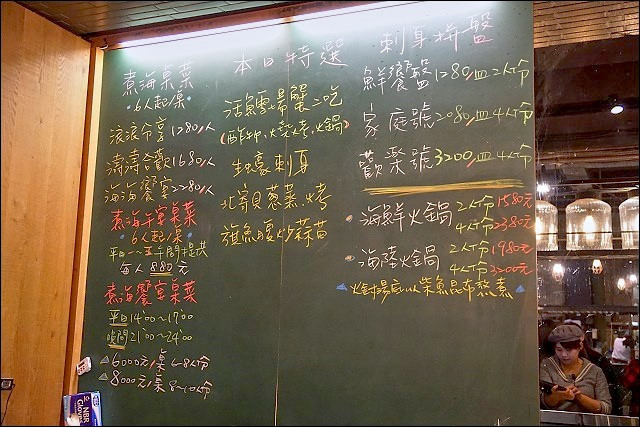 煮海桌菜
·6人起/桌·
滾滾分享1280/人
濤濤合歡1680/人
海海饗宴2280/人
煮海午宴桌菜
·6人起/桌·
平日一~五午間提供
每人880元
煮海饗宴桌菜
平日14:00~17:00
晚間21:00~24:00
6000元/桌 6-8人份
8000元/桌 8~10人份
本日特選
活鱈場蟹二吃
(酢物、燒烤、火鍋)
生蠔刺身
北寄貝蔥蒸、烤
旗魚腹炒蒜苗
刺身拼盤
鮮饗盤1280/皿2人份
家庭號2080/皿4人份
歡樂號3200/皿4人份
·海鮮火鍋 2人份1580元
4人份2380元
·海陸火鍋 2人份1980元
4人份3200元
火鍋湯底以柴魚昆布熬煮
NBR
Gloves